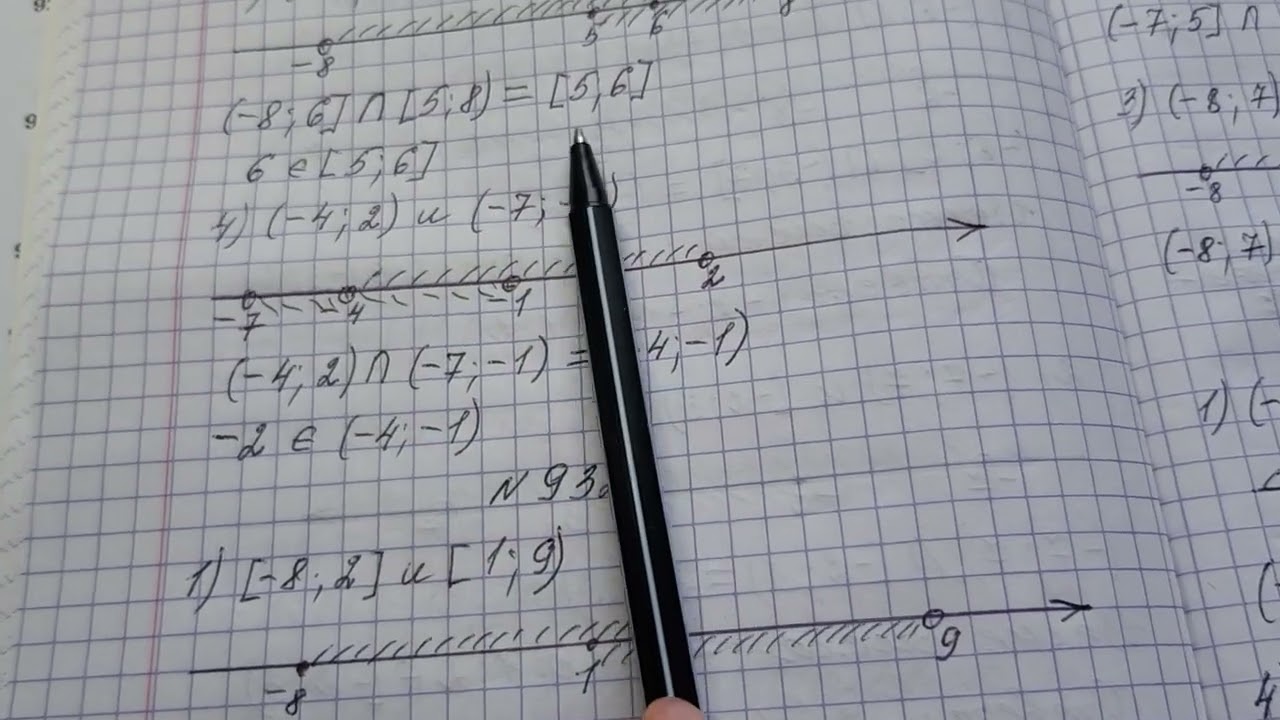 5 6
-8
(-8; 6] ∩ [5; 8) = [5; 6]
6 ∈ [5; 6]
4) (-4; 2) и (-7;
-7 -4 -1 2
(-4; 2) ∩ (-7; -1) = 4; -1)
-2 ∈ (-4; -1)
N 93
1) [-8; 2] и [1; 9)
-8 1 9
9
(-7; 5] ∩
3) (-8; 7)
-8
(-8; 7)
1) (-
(
4